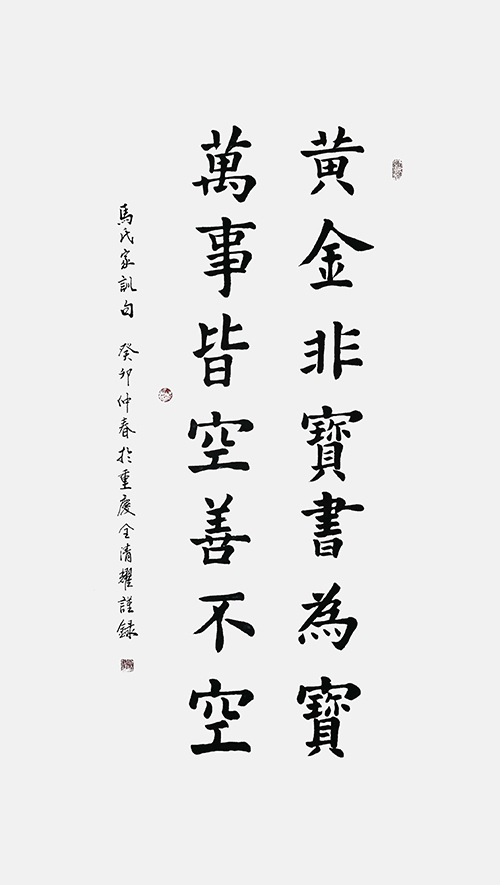 黄金非寶書為寶
萬事皆空善不空
馬氏家訓句 癸卯仲春於重慶全清耀謹録